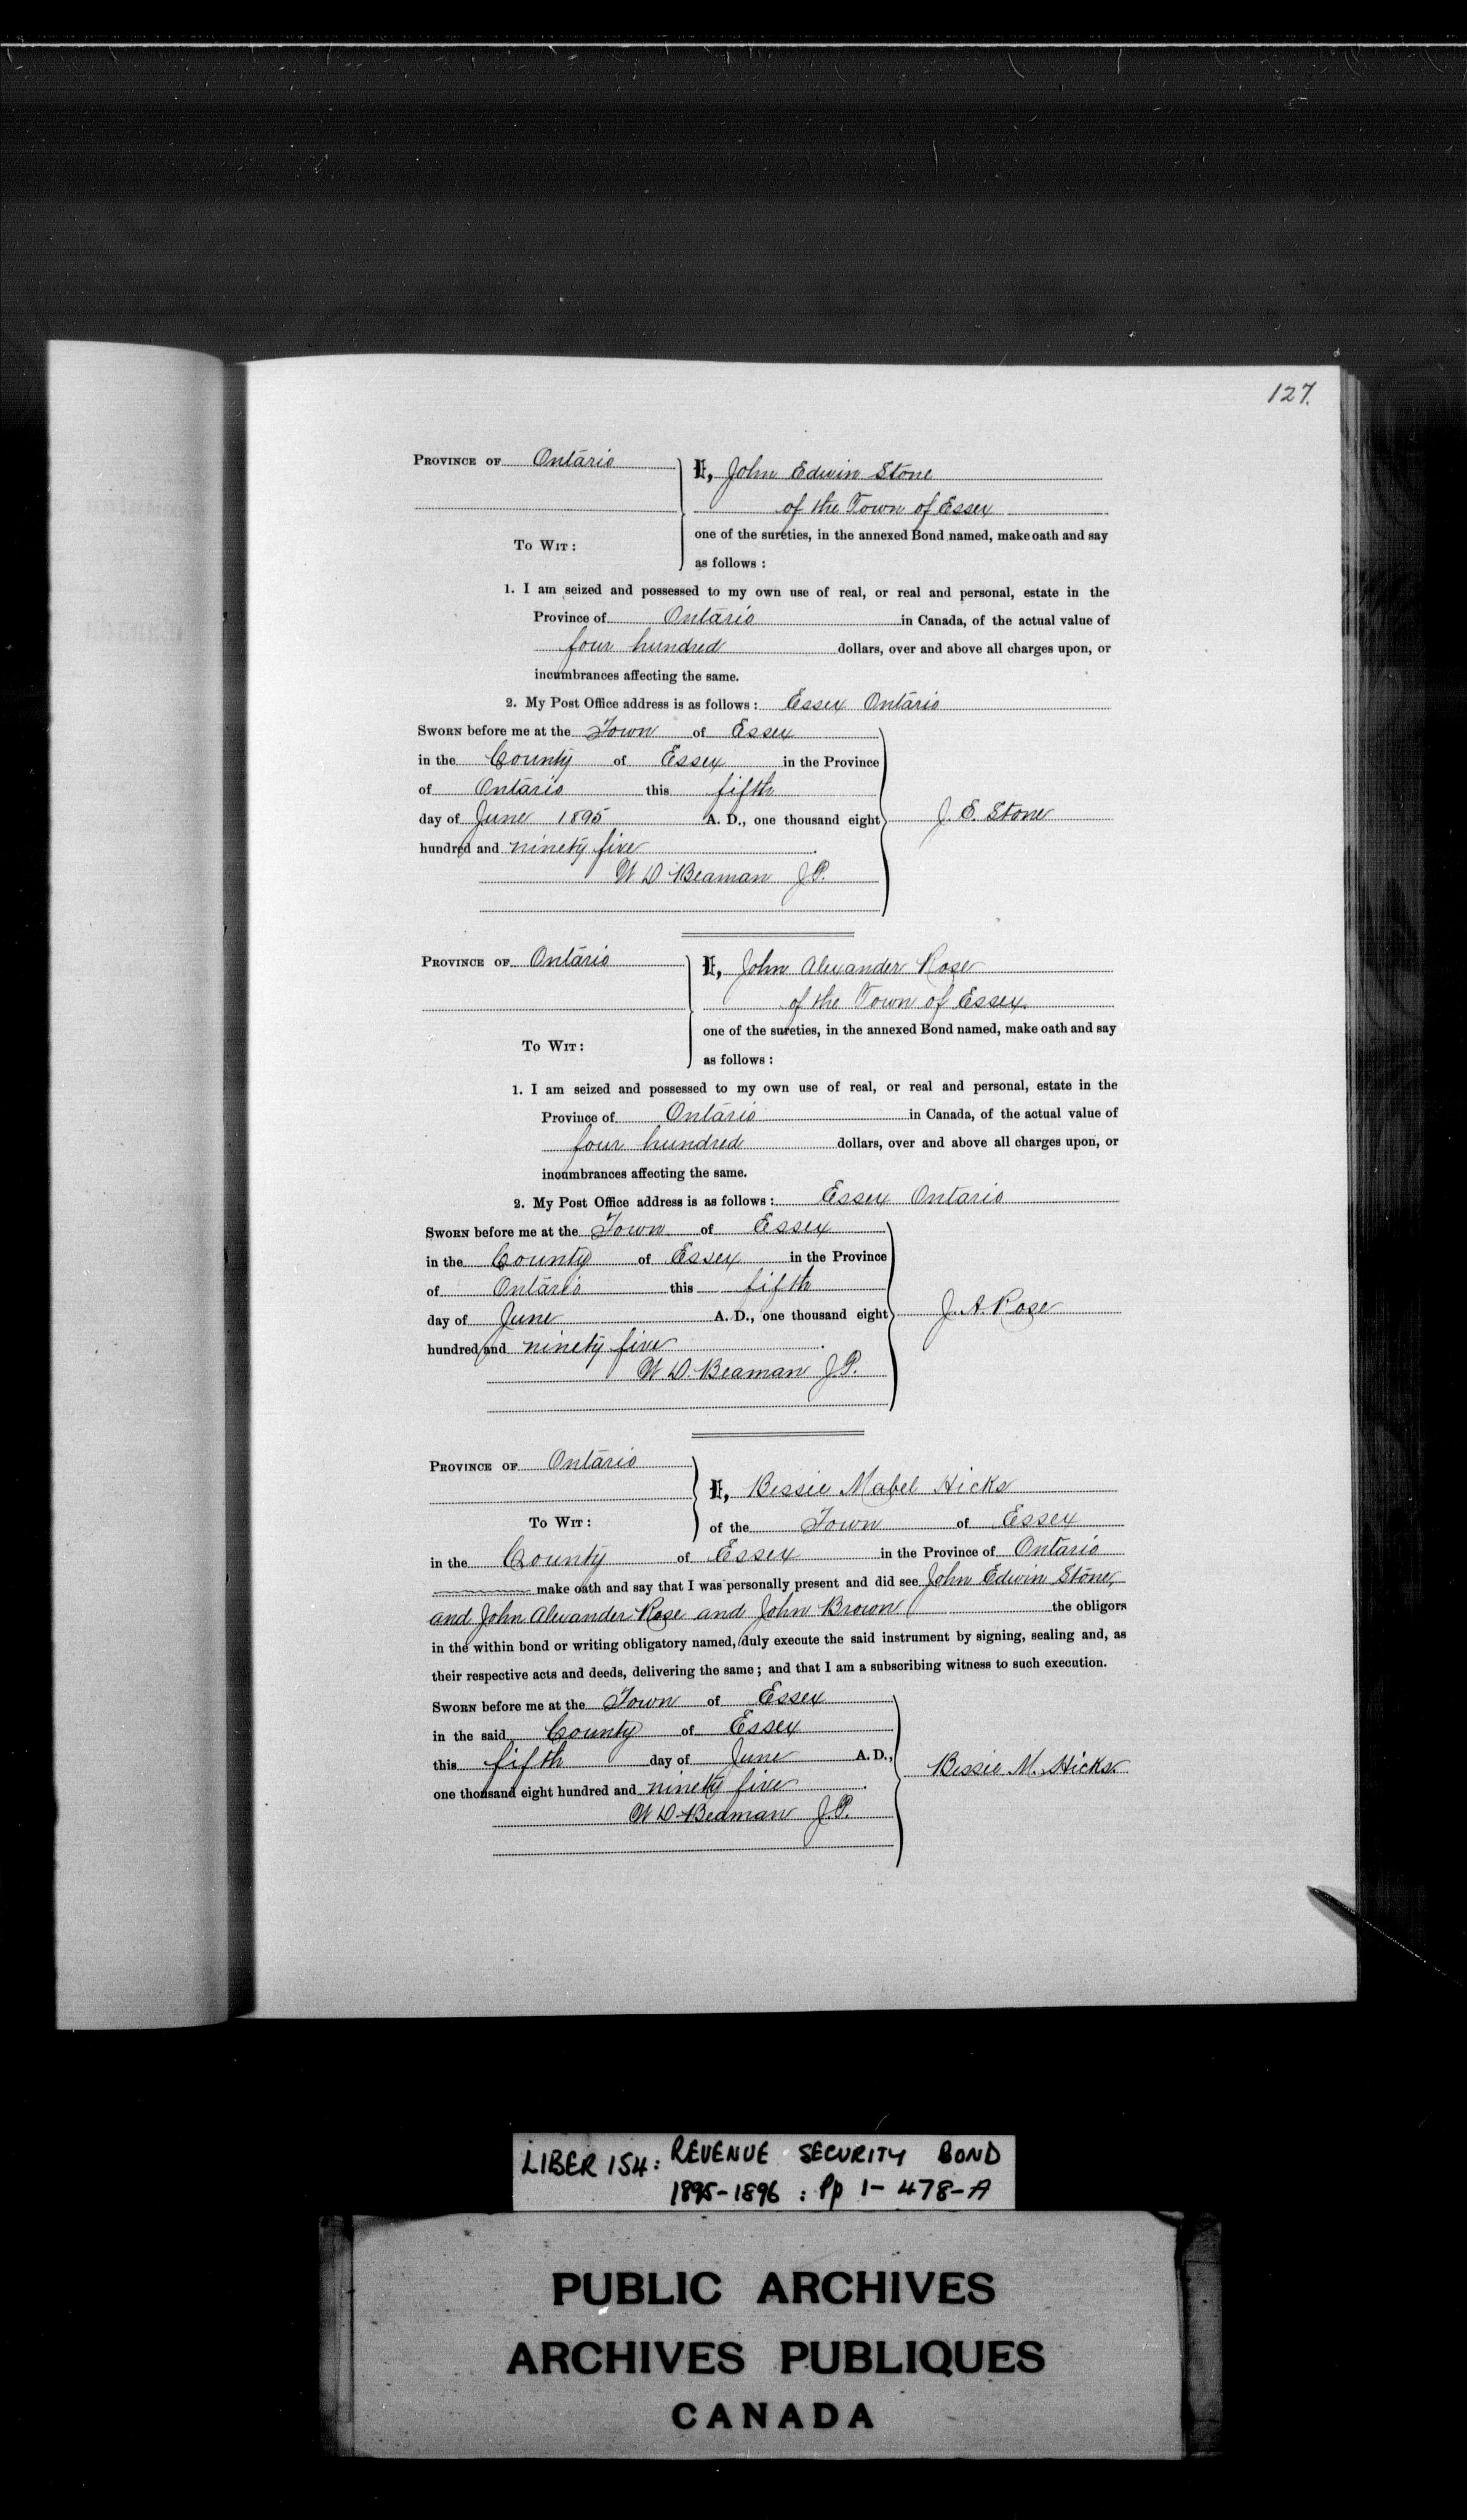 127.
PROVINCE OF Ontario
I, John Edwin Stone
of the Town of Essex
TO WIT:
one of the sureties, in the annexed Bond named, make oath and say
as follows :
1. I am seized and possessed to my own use of real, or real and personal, estate in the
Province of Ontario in Canada, of the actual value of
four hundred dollars, over and above all charges upon, or
incumbrances affecting the same.
2. My Post Office address is as follows : Essex Ontario
SWORN before me at the Town of Essex
in the County of Essex in the Province
of Ontario this fifth
day of June 1895 A. D., one thousand eight
J. E. Stone
hundred and ninety five
W D Beaman J.P.
PROVINCE OF Ontario
I, John Alexander Rose
of the Town of Essex
TO WIT:
one of the sureties, in the annexed Bond named, make oath and say
as follows :
1. I am seized and possessed to my own use of real, or real and personal, estate in the
Province of Ontario in Canada, of the actual value of
four hundred dollars, over and above all charges upon, or
incumbrances affecting the same.
2. My Post Office address is as follows : Essex Ontario
SWORN before me at the Town of Essex
in the County of Essex in the Province
of Ontario this fifth
day of June A. D., one thousand eight
J. A. Rose
hundred and ninety five
W D. Beaman J.P.
PROVINCE OF Ontario
I, Bessie Mabel Hicks
TO WIT:
of the Town of Essex
in the County of Essex in the Province of Ontario
make oath and say that I was personally present and did see John Edwin Stone,
and John Alexander Rose and John Brown the obligors
in the within bond or writing obligatory named, duly execute the said instrument by signing, sealing and, as
their respective acts and deeds, delivering the same ; and that I am a subscribing witness to such execution.
SWORN before me at the Town of Essex
in the said County of Essex
this fifth day of June A. D.,
Bessie M. Hicks
one thousand eight hundred and ninety five
W D Beaman J.P.
LIBER 154: REVENUE SECURITY BOND
1895-1896 : Pp 1- 478-A
PUBLIC ARCHIVES
ARCHIVES PUBLIQUES
CANADA